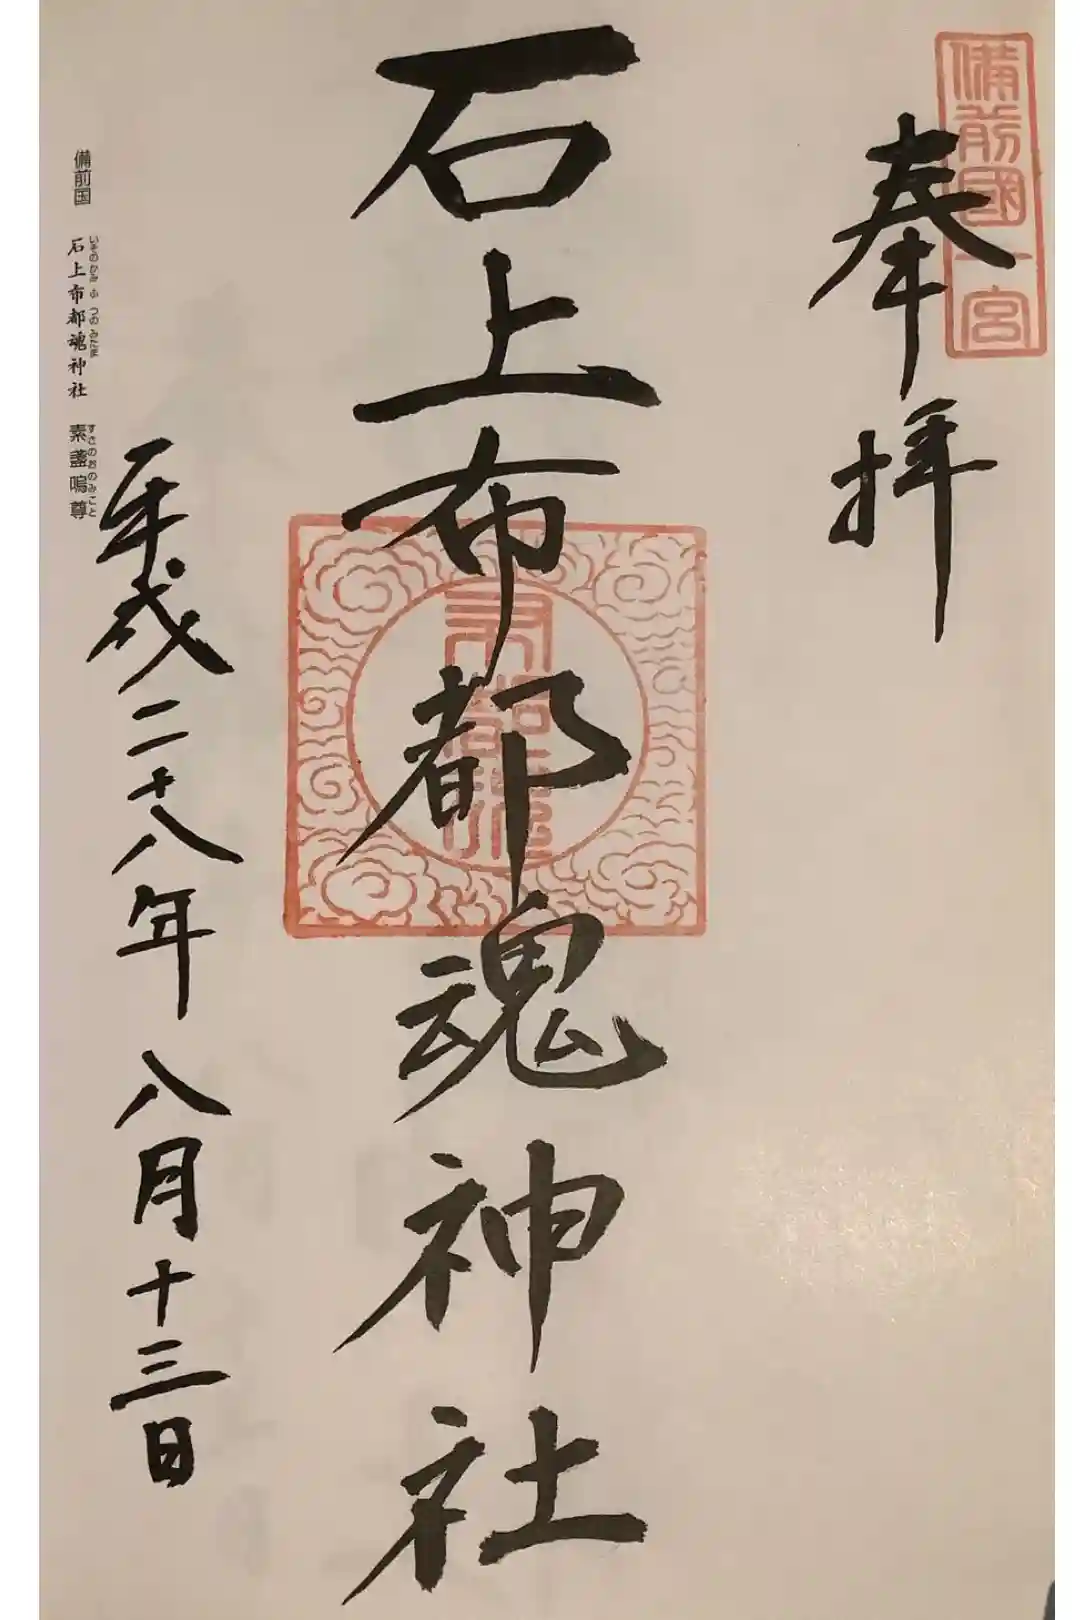 備前國一宮
奉拝
石上布都魂神社
布都魂
平成二十八年八月十三日
備前国 石上布都魂神社 素盞嗚尊
いそのかみ ふ つの みたま
すさのおのみこと